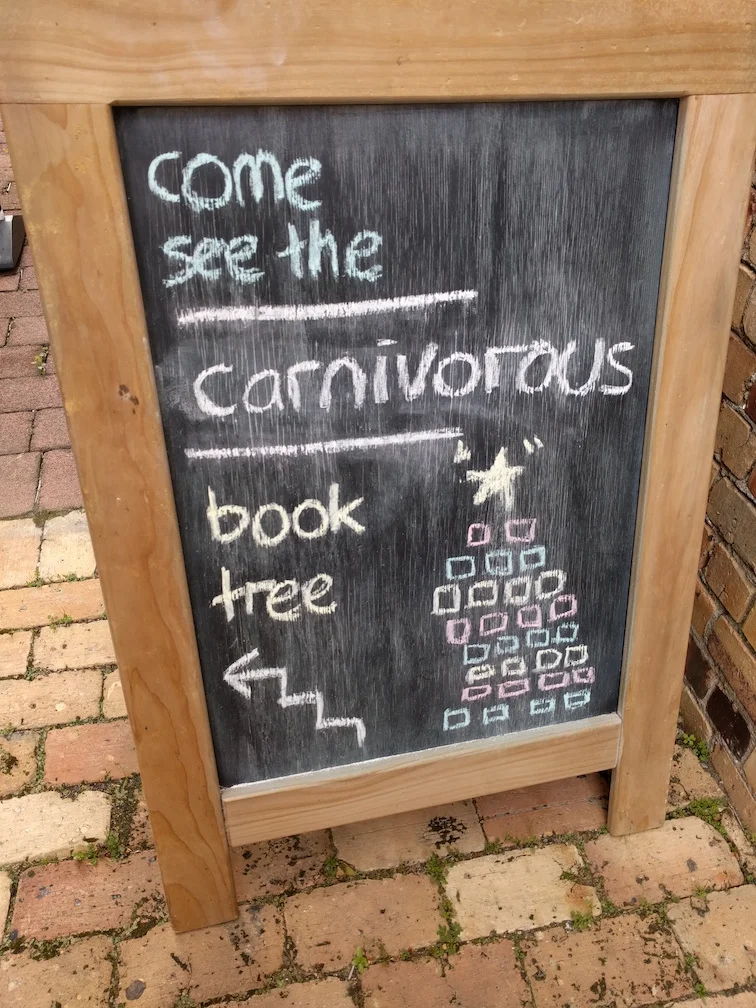 come
see the
carnivorous
book
tree